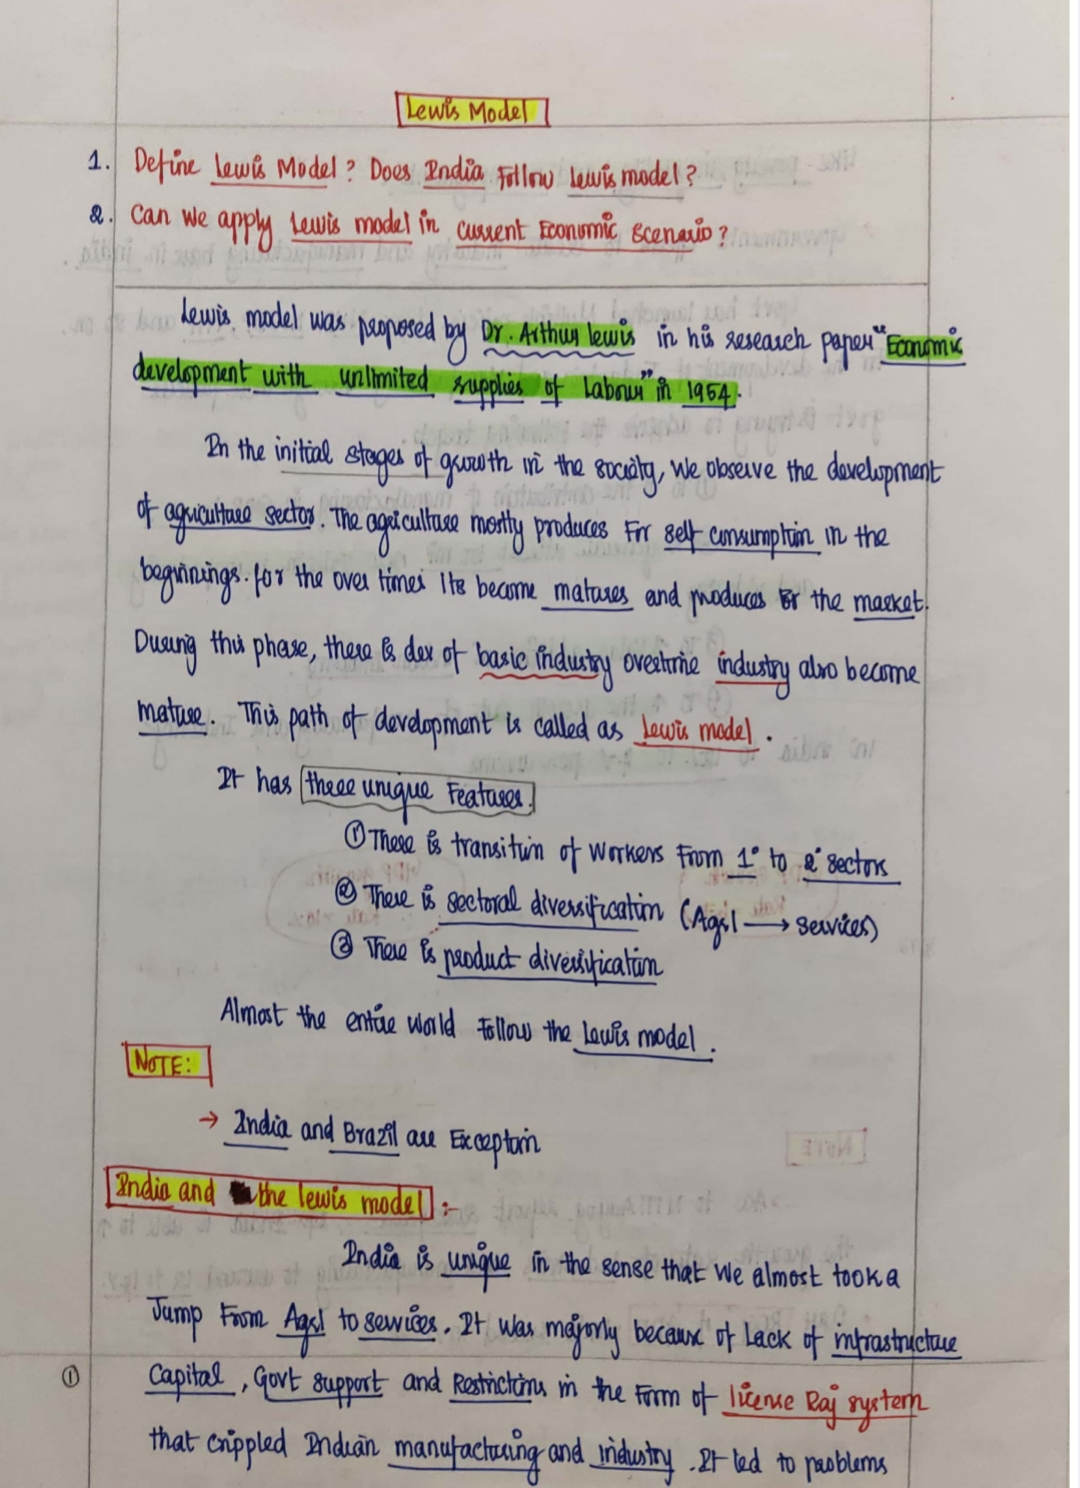 Lewis Model
1. Define Lewis Model? Does India Follow lewis model?
2. Can we apply Lewis model in current Economic Scenario?
Lewis model was proposed by Dr. Arthur lewis in his research paper "Economic
development with unlimited supplies of Labour" in 1954.
In the initial stages of growth in the society, We observe the development
of agriculture sector. The agriculture mostly produces For self consumption in the
beginnings. for the over times Its become matures and produces for the market.
During this phase, there is dev of basic industry overtime industry also become
mature. This path of development is called as Lewis model.
It has three unique Features.
① There is transition of workers From 1° to 2° sectors
② There is sectoral diversification (Agrl → services)
③ There is product diversification
Almost the entire World Follow the Lewis model.
NOTE:
→ India and Brazil are Exception
India and the lewis model :-
India is unique in the sense that We almost took a
Jump From Agrl to services. It was majorly because of Lack of infrastructure
① Capital, Govt support and Restrictions in the Form of license Raj system
that crippled Indian manufacturing and industry. It led to problems